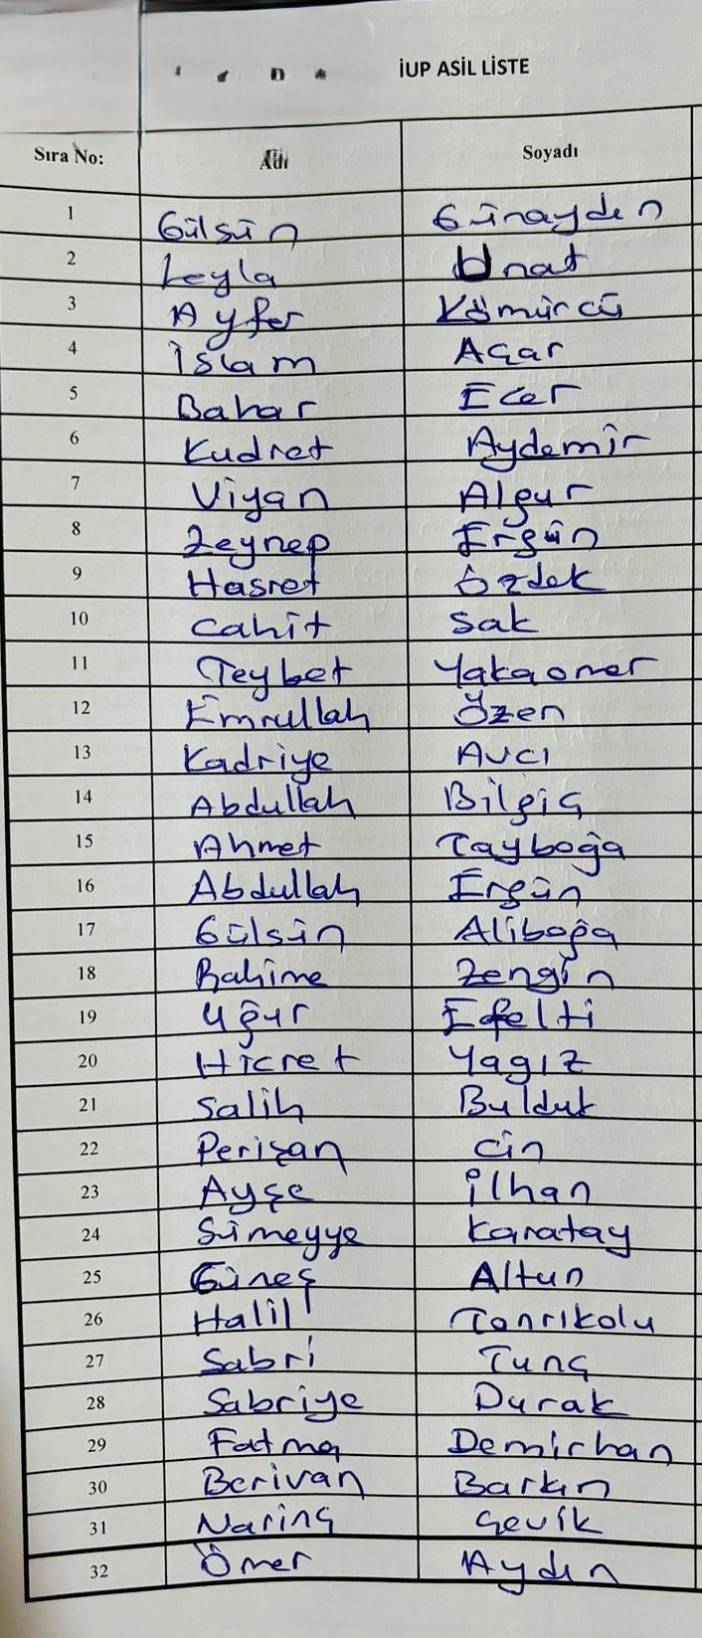 İUP ASİL LİSTE
Sıra No: Adı Soyadı
1 Gülsün Günaydın
2 Leyla Unat
3 Ayfer Kömürcü
4 İslam Açar
5 Bahar Ecer
6 Kudret Aydemir
7 Viyan Algur
8 Zeynep Ergün
9 Hasret Özdek
10 Cahit Sak
11 Teybet Yakaomer
12 Emrullah Özen
13 Kadriye Avcı
14 Abdullah Bilgiç
15 Ahmet Tayboğa
16 Abdullah Ergün
17 Gülsün Aliboğa
18 Rahime Zengin
19 Uğur Efelti
20 Hicret Yagız
21 Salih Bulduk
22 Perişan Cin
23 Ayşe İlhan
24 Sümeyye Karatay
25 Güneş Altun
26 Halil Tanrıkolu
27 Sabri Tunç
28 Sabriye Durak
29 Fatma Demirhan
30 Berivan Barkın
31 Narinç Çevik
32 Ömer Aydın